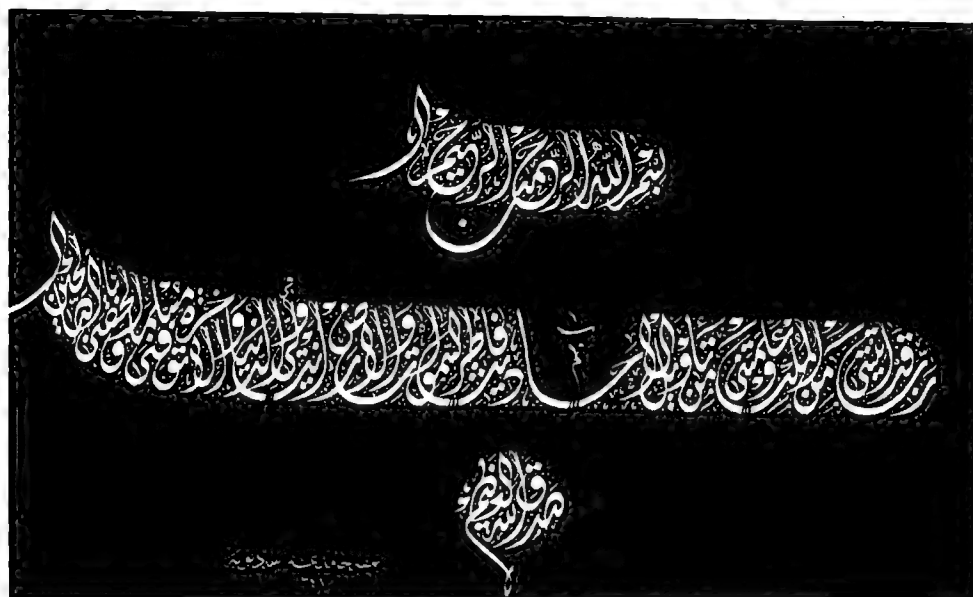 بِسْمِ اللَّهِ الرَّحْمَٰنِ الرَّحِيمِ
رَبِّ قَدْ آتَيْتَنِي مِنَ الْمُلْكِ وَعَلَّمْتَنِي مِنْ تَأْوِيلِ الْأَحَادِيثِ فَاطِرَ السَّمَاوَاتِ وَالْأَرْضِ أَنْتَ وَلِيِّي فِي الدُّنْيَا وَالْآخِرَةِ تَوَفَّنِي مُسْلِمًا وَأَلْحِقْنِي بِالصَّالِحِينَ
صدق الله العظيم